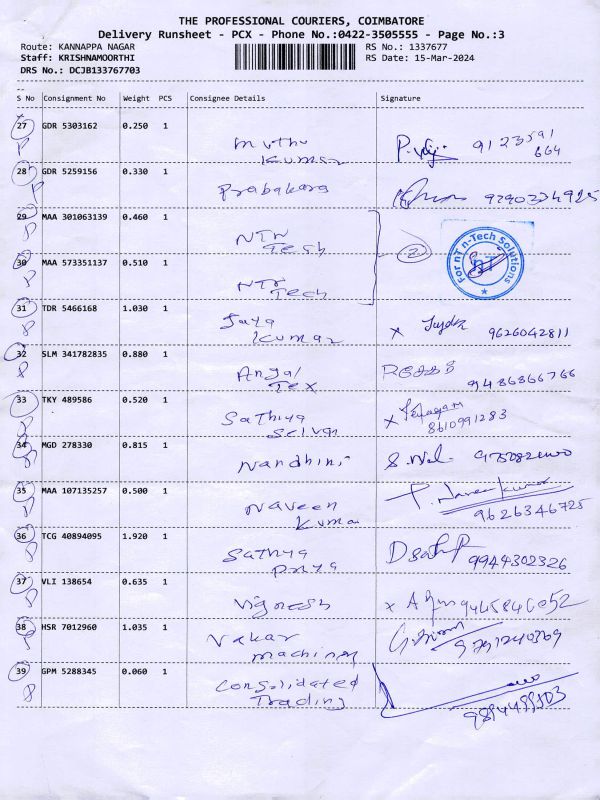 THE PROFESSIONAL COURIERS, COIMBATORE
Delivery Runsheet - PCX - Phone No.:0422-3505555 - Page No.:3
Route: KANNAPPA NAGAR RS No.: 1337677
Staff: KRISHNAMOORTHI RS Date: 15-Mar-2024
DRS No.: DCJB133767703
S No Consignment No Weight PCS Consignee Details Signature
27 GDR 5303162 0.250 1
Muthu
Kumar
28 GDR 5259156 0.330 1
Prabakara
29 MAA 301063139 0.460 1
NTW
Tech
2
For nT n-Tech Solutions
30 MAA 573351137 0.510 1
Tech
31 TDR 5466168 1.030 1
Jaya
Kumar
x 9626042811
32 SLM 341782835 0.880 1
Angal
Tex
9486866766
33 TKY 489586 0.520 1
Sathiya
Selvan
x 8610991283
34 MGD 278330 0.815 1
Nandhini
35 MAA 107135257 0.500 1
Naveen
Kumar
P. Naveen Kumar
9626346725
36 TCG 40894095 1.920 1
Sathya
Priya
9944302326
37 VLI 138654 0.635 1
Vignesh
x
38 HSR 7012960 1.035 1
Vakar
machinery
9791240369
39 GPM 5288345 0.060 1
Consolidated
Trading